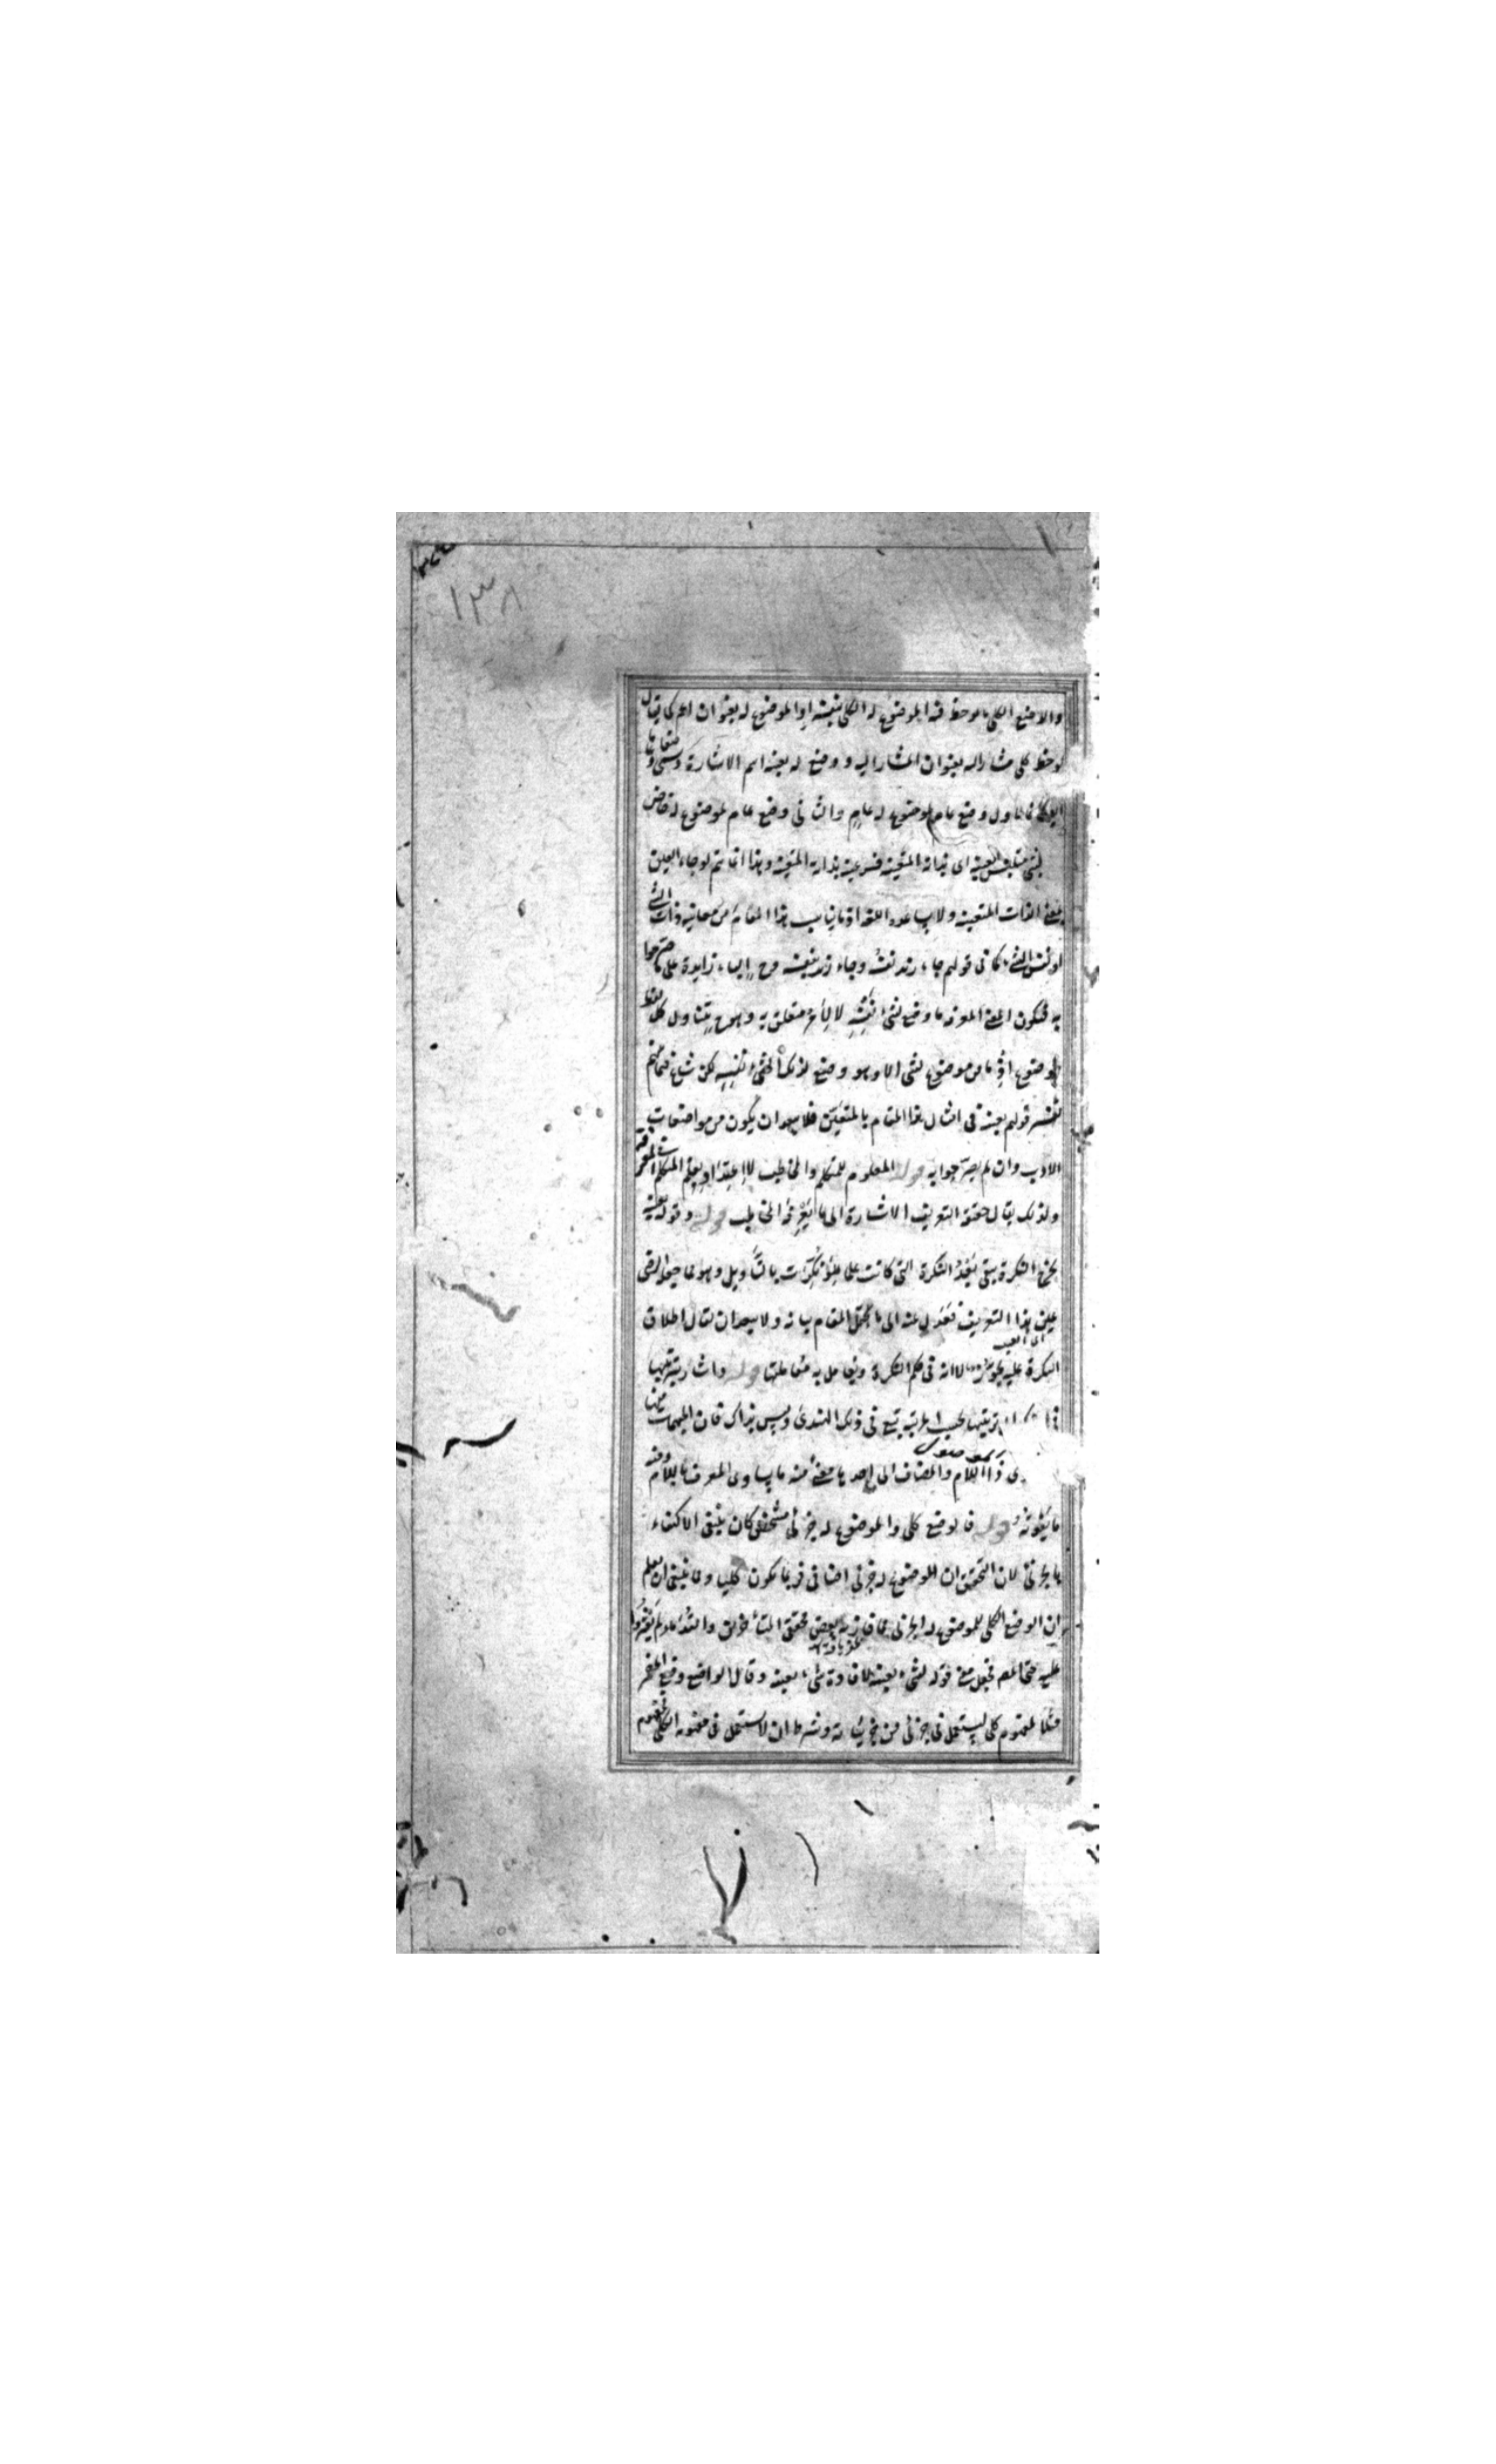 ١٣٨
والوضع الكلي ما لوحظ فيه الموضوع له الكلي بنفسه او الموضوع له بعنوان اعم كما يقال
لوحظ كل مشار اليه بعنوان المشار اليه ووضع له بعينه اسم الاشارة
فالاول وضع عام لموضوع له عام والثاني وضع عام لموضوع له خاص
اى بذاته المتعينة فسر عينه بذاته المتعينة وهذا انما يتم لو جاء العين
بمعنى الذات المتعينة ولا يساعده اللغة اذ ما يناسب هذا المقام من معانيه ذات الشئ
او نفس الشئ كما فى قولهم جاء زيد نفسه وجاء زيد بعينه وح الباء زايدة على ما صرحوا
به فيكون المعنى المعرفة ما وضع لشئ نفسه لا لامر متعلق به وهو ح يتناول كل لفظ
موضوع اذ ما من موضوع لشئ الا وهو وضع لذلك الشئ نفسه لكن شاع فيما بينهم
تفسير قولهم بعينه فى امثال هذا المقام بالمتعين فلا يبعد ان يكون من مواضعات
الادب وان لم يصرحوا به قوله المعلوم للمتكلم والمخاطب لا اعتداد بعلم المتكلم فى المعرفة
ولذلك يقال حقيقة التعريف الاشارة الى ما يعرفه المخاطب قوله وقوله بعينه
يخرج النكرة بقى بعد النكرة التى كانت علما نكرت بالتأويل وهو مما حير الرضى
عين هذا التعريف فعدل عنه الى ما يحتمل المقام بيانه ولا يبعد ان يقال اطلاق
النكرة عليه تجوز لانه فى حكم النكرة ويعامل به معاملتها قوله واشار بترتيبها
ترتيبها بحسب المرتبة يتبع فى ذلك الهندى وليس بذاك فان المبهمات منها
ذا اللام والمضاف الى احدها معنى منه ما يساوى المعرف باللام ومنه
ما يفوقه قوله فالوضع كلى والموضوع له جزئى مشخص كان ينبغى الاكتفاء
بالجزئى لان التحقيق ان الموضوع له جزئى اضافى فربما يكون كليا ومما ينبغى ان يعلم
ان الوضع الكلى للموضوع له الجزئى مما فاز به بعض محقق المتأخرين والقدماء لم يعثروا
عليه حتى المص فجعل معنى قوله لشئ بعينه لافادة شئ بعينه وقال الواضع وضع المضمر
مثلا لمفهوم كلى ليستعمل فى جزئى من جزئياته وشرط ان لا يستعمل فى مفهومه الكلى